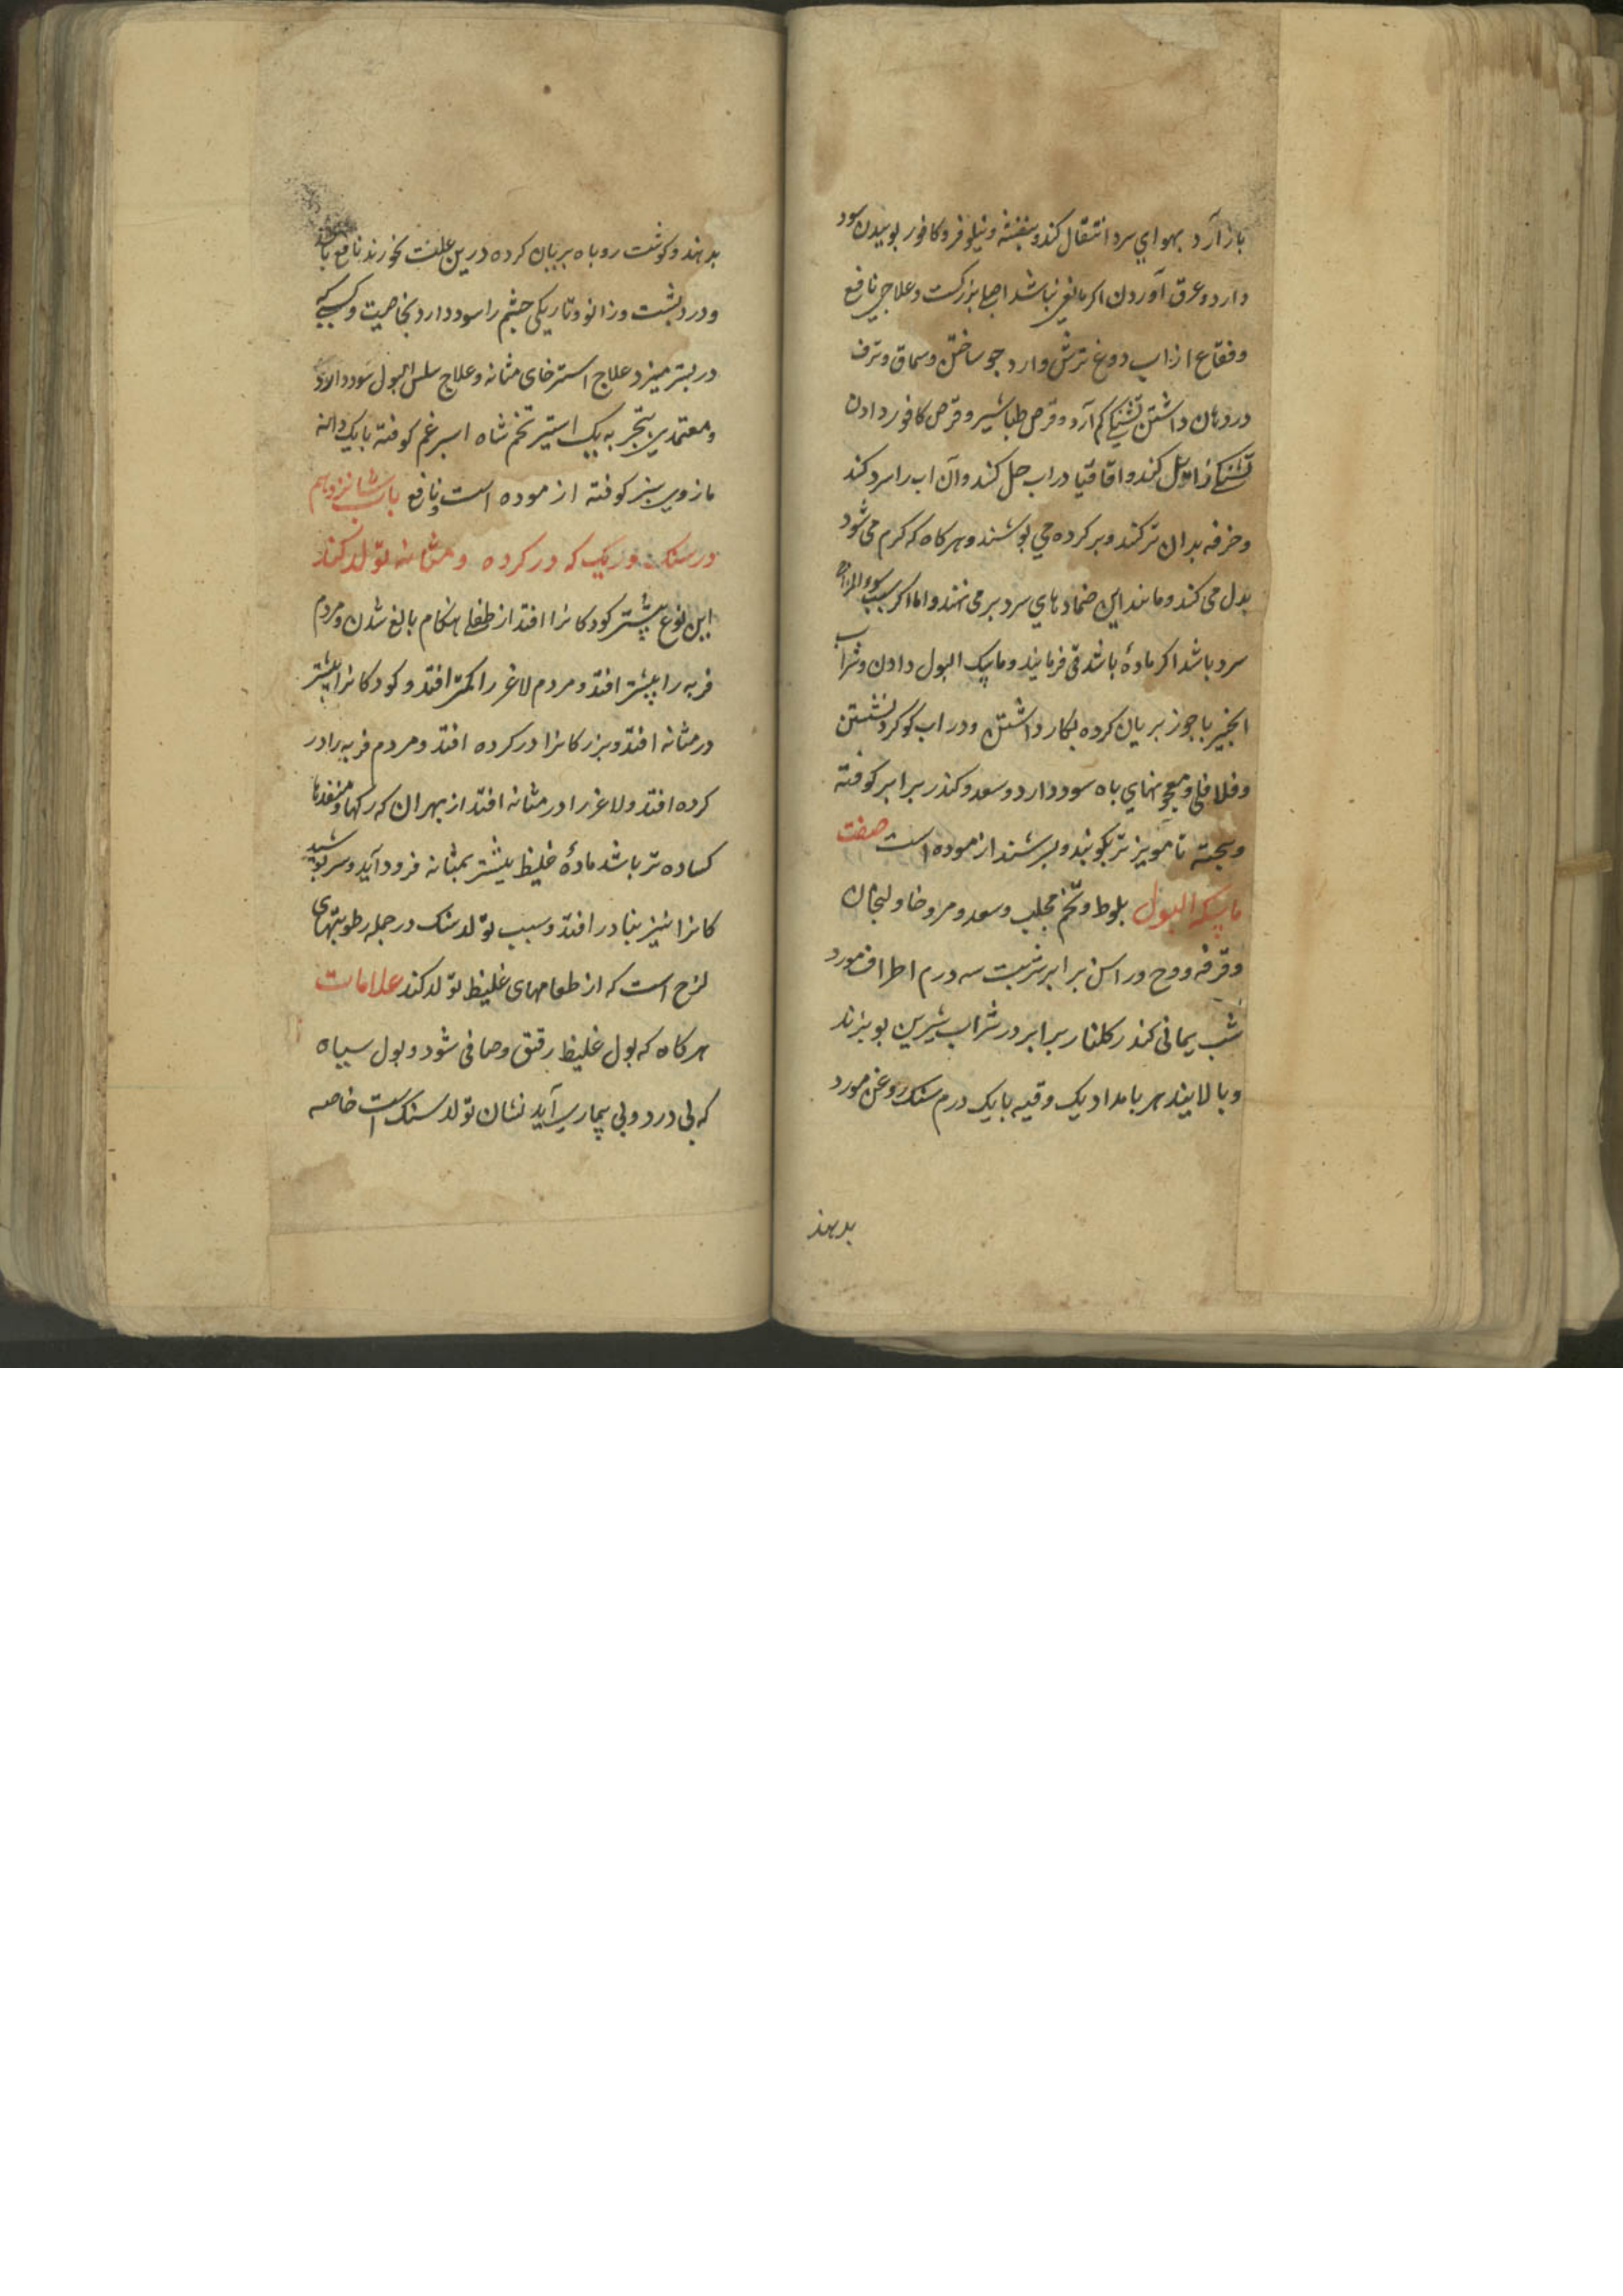 باز آرد بهواي سرد انتقال کند و بنفشه و نیلوفر و کافور بوییدن سود
دارد و عرق آوردن اکر مانعی نباشد اصلی بزرکست و علاجی نافع
وفقاع از اب دوغ ترش و ارد جو ساختن وسماق وترف
در دهان داشتن تشنکی کم آرد وقرص طباشیر وقرص کافور دادن
تشنکی زایل کند واقاقیا در اب حل کنند وآن اب را سرد کنند
وخرقه بدان تر کنند وبر کرده می پوشند وهرکاه که کرم می شود
بدل می کنند ومانند این ضمادهاي سرد بر می نهند واما اکر سبب سوء المزاج
سرد باشد اکر مادهٔ باشد قی فرمایند وماسک البول دادن وشراب
انجیر با جوز بریان کرده بکار داشتن ودر اب کوکرد نشستن
وفلافلی ومعجونهاي باه سود دارد وسعد وکندر برابر کوفته
وبیخته تا مویز تر بکوبند وبسرشند ازموده است صفت
ماسکه البول بلوط وتخم محلب وسعد ومر وخاولنجان
وقرفه ووج وراسن برابر شربت سه درم اطراف مورد
شب یمانی کندر کلنار برابر در شراب شیرین بوبزند
وبالایند هر بامداد یک وقیه با یک درم سنک روغن مورد
بدهند
بدهند وکوشت روباه بریان کرده درین علت بخورند نافع باشد
ودرد پشت وزانو وتاریکی چشم را سود دارد بخاصیت وکسی که
در بستر میزد علاج استرخای مثانه وعلاج سلس البول سود دارد
ومعتمدین بتجربه یک استیر تخم شاه اسبرغم کوفته با یک دانه
مازوی سبز کوفته ازموده است ونافع باب شانزدهم
در سنک وریک که در کرده ومثانه تولد کند
این نوع بیشتر کودکانرا افتد از طفلی هنکام بالغ شدن ومردم
فربه را بیشتر افتد ومردم لاغر را کمتر افتد وکودکانرا بیشتر
در مثانه افتد وبزرکانرا در کرده افتد ومردم فربه را در
کرده افتد ولاغر را در مثانه افتد از بهر ان که رکها ومنفذها
کساده تر باشد مادهٔ غلیظ بیشتر بمثانه فرود آید وسر پوشید
کانرا نیز بنادر افتد وسبب تولد سنک در جمله رطوبتهای
لزج است که از طعامهای غلیظ تولد کند علامات
هرکاه که بول غلیظ رقیق وصافی شود وبول سیاه
که بی درد وبی بیماری آید نشان تولد سنک است خاصه